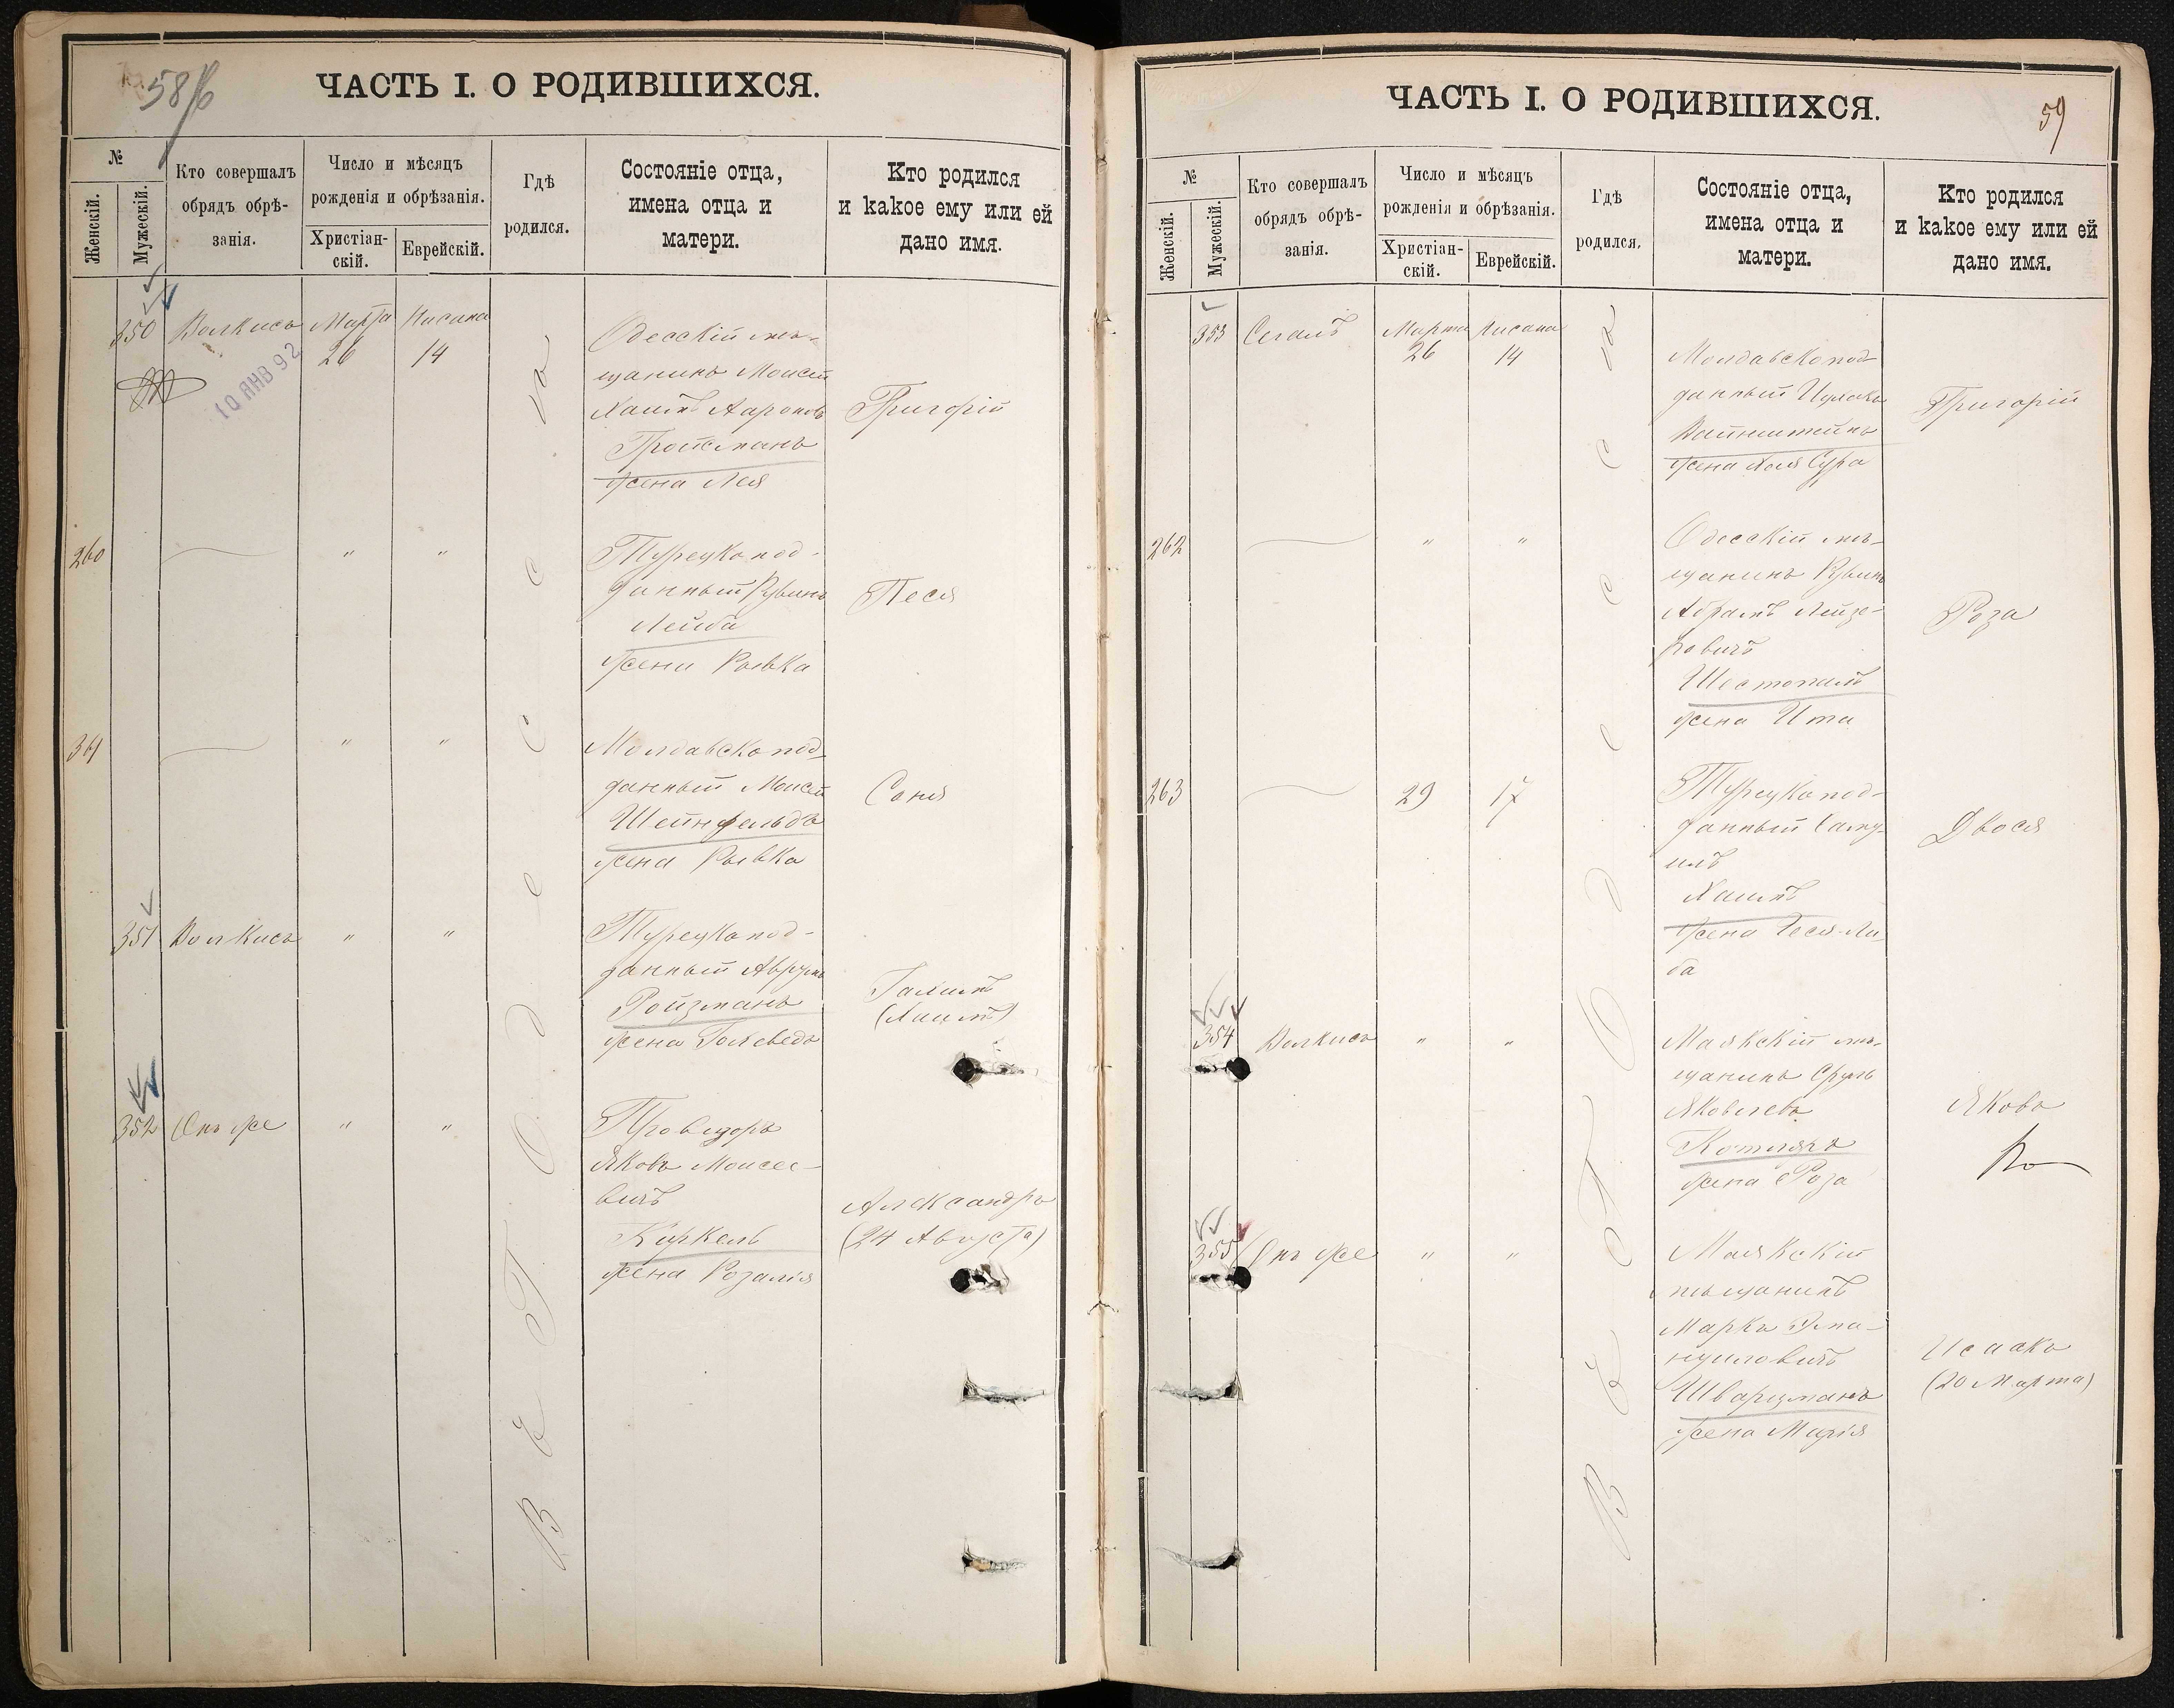 58 об
ЧАСТЬ I. О РОДИВШИХСЯ.
№
Женскій.
Мужескій.
Кто совершалъ
обрядъ обрѣ-
занія.
Число и мѣсяцъ
рожденія и обрѣзанія.
Христіан-
скій.
Еврейскій.
Гдѣ
родился.
Состояніе отца,
имена отца и
матери.
Кто родился
и какое ему или ей
дано имя.
350 Волкисъ Марта Нисана
26 14
10 ЯНВ 92
Одесскій мѣ-
щанинъ Моисей
Хаимъ Ароновъ
Тройсманъ
жена Лея
Григорій
260 " "
Турецкопод-
данный Рувинъ
Лейба
жена Ривка
Песя
261 " "
Молдавскопод-
данный Моисей
Шейнфельдъ
жена Ривка
Соня
351 Волкисъ " "
Турецкопод-
данный Аврумъ
Ройзманъ
жена
(Хаимъ)
352 Онъ же " "
Провизоръ
Яковъ Моисее-
вичъ
жена Розалія
Александръ
(24 Августа)
Въ Одессѣ
ЧАСТЬ I. О РОДИВШИХСЯ.
59
№
Женскій.
Мужескій.
Кто совершалъ
обрядъ обрѣ-
занія.
Число и мѣсяцъ
рожденія и обрѣзанія.
Христіан-
скій.
Еврейскій.
Гдѣ
родился.
Состояніе отца,
имена отца и
матери.
Кто родился
и какое ему или ей
дано имя.
353 Сегалъ Марта Нисана
26 14
Молдавскопод-
данный Ицлокъ
Вайнштейнъ
жена Хая Сура
Григорій
262 " "
Одесскій мѣ-
щанинъ Рувинъ
Абрамъ Лейзе-
ровичъ
Шестопалъ
жена Ита
Роза
263 29 17
Турецкопод-
данный Саму-
илъ
Хаимъ
жена Песя-Ли-
ба
Двося
354 Волкисъ " "
Маякскій мѣ-
щанинъ Сруль
Яковлевъ
Котляръ
жена Роза
Яковъ
355 Онъ же " "
Маякскій
мѣщанинъ
Марко Эма-
нуиловичъ
Шварцманъ
жена Марія
Исаакъ
(20 Марта)
Въ Одессѣ